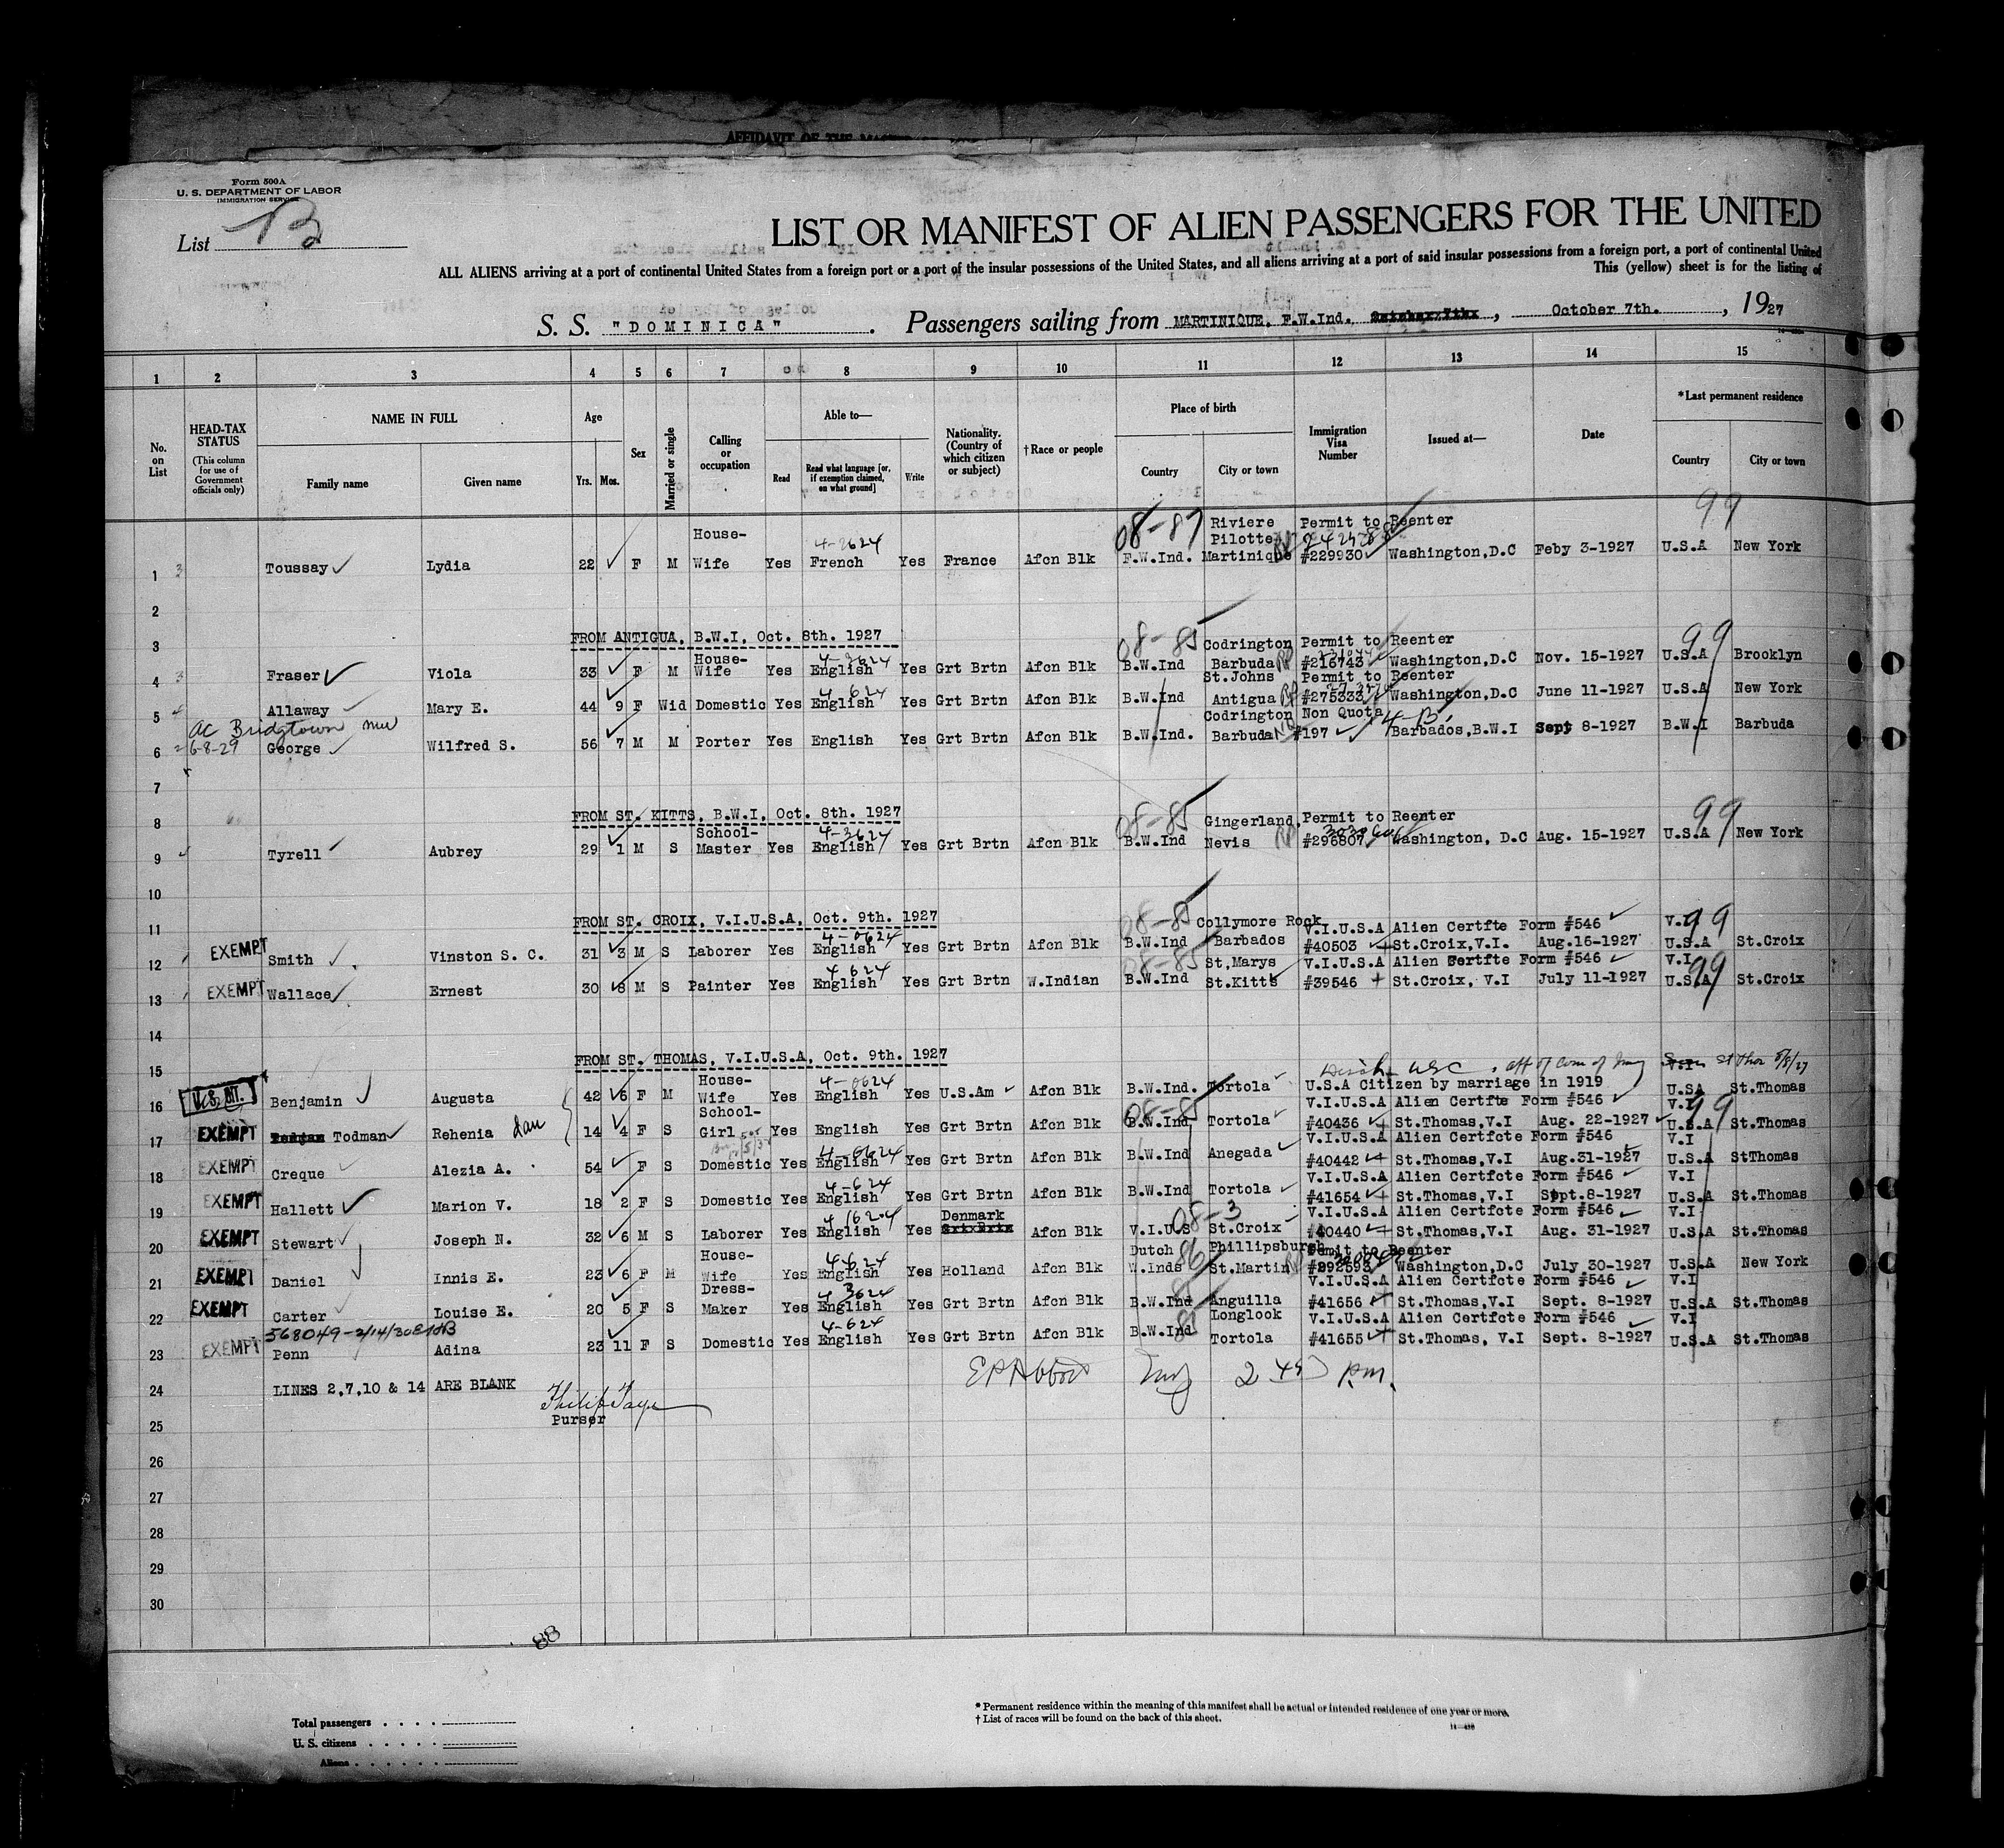 AFFIDAVIT OF THE
Form 500A
U. S. DEPARTMENT OF LABOR
IMMIGRATION SERVICE
List B
LIST OR MANIFEST OF ALIEN PASSENGERS FOR THE UNITED
ALL ALIENS arriving at a port of continental United States from a foreign port or a port of the insular possessions of the United States, and all aliens arriving at a port of said insular possessions from a foreign port, a port of continental United
This (yellow) sheet is for the listing of
S. S. "DOMINICA" . Passengers sailing from MARTINIQUE, F.W.Ind. , October 7th. , 1927
1 2 3 4 5 6 7 8 9 10 11 12 13 14 15
No. on List
HEAD-TAX STATUS (This column for use of Government officials only)
NAME IN FULL Family name Given name
Age Yrs. Mos.
Sex
Married or single
Calling or occupation
Able to— Read Read what language [or, if exemption claimed, on what ground] Write
Nationality. (Country of which citizen or subject)
†Race or people
Place of birth Country City or town
Immigration Visa Number
Issued at—
Date
*Last permanent residence Country City or town
House- 08-87 Riviere Permit to Reenter 99
4-2624 Pilotte
1 Toussay Lydia 22 F M Wife Yes French Yes France Afcn Blk F.W.Ind. Martinique #229930 Washington,D.C Feby 3-1927 U.S.A New York
2
3 FROM ANTIGUA, B.W.I, Oct. 8th. 1927 08-85 Codrington Permit to Reenter 99
House- 4-3624
4 Fraser Viola 33 F M Wife Yes English Yes Grt Brtn Afcn Blk B.W.Ind Barbuda #216743 Washington,D.C Nov. 15-1927 U.S.A Brooklyn
St.Johns Permit to Reenter
4-624
5 Allaway Mary E. 44 9 F Wid Domestic Yes English Yes Grt Brtn Afcn Blk B.W.Ind Antigua #275333 Washington,D.C June 11-1927 U.S.A New York
AC Bridgtown Codrington Non Quota 4-B
6 6-8-29 George Wilfred S. 56 7 M M Porter Yes English Yes Grt Brtn Afcn Blk B.W.Ind. Barbuda #197 Barbados,B.W.I Sept 8-1927 B.W.I Barbuda
7
8 FROM ST. KITTS, B.W.I, Oct. 8th. 1927 08-85 Gingerland, Permit to Reenter 99
School- 4-3624
9 Tyrell Aubrey 29 1 M S Master Yes English Yes Grt Brtn Afcn Blk B.W.Ind Nevis #296807 Washington, D.C Aug. 15-1927 U.S.A New York
10
11 FROM ST. CROIX, V.I.U.S.A, Oct. 9th. 1927 08-85 Collymore Rock V.I.U.S.A Alien Certfte Form #546 V.I 99
4-0624
12 EXEMPT Smith Vinston S. C. 31 3 M S Laborer Yes English Yes Grt Brtn Afcn Blk B.W.Ind Barbados #40503 St.Croix,V.I. Aug.16-1927 U.S.A St.Croix
4 624 08-85 St,Marys V.I.U.S.A Alien Certfte Form #546 V.I 99
13 EXEMPT Wallace Ernest 30 8 M S Painter Yes English Yes Grt Brtn W.Indian B.W.Ind St.Kitts #39546 St.Croix, V.I July 11-1927 U.S.A St.Croix
14
15 FROM ST. THOMAS, V.I.U.S.A, Oct. 9th. 1927
House- 4-0624 V.I
16 Benjamin Augusta 42 6 F M Wife Yes English Yes U.S.Am Afcn Blk B.W.Ind. Tortola U.S.A Citizen by marriage in 1919 USA St.Thomas
School- 08-85 V.I.U.S.A Alien Certfte Form #546 V.I 99
17 EXEMPT Todman Rehenia dau 14 4 F S Girl Yes English Yes Grt Brtn Afcn Blk B.W.Ind Tortola #40436 St.Thomas,V.I Aug. 22-1927 U.S.A St.Thomas
4-0624 V.I.U.S.A Alien Certfcte Form #546 V.I
18 EXEMPT Creque Alezia A. 54 F S Domestic Yes English Yes Grt Brtn Afcn Blk B.W.Ind Anegada #40442 St.Thomas,V.I Aug.31-1927 U.S.A StThomas
4-624 V.I.U.S.A Alien Certfcte Form #546 V.I
19 EXEMPT Hallett Marion V. 18 2 F S Domestic Yes English Yes Grt Brtn Afcn Blk B.W.Ind Tortola #41654 St.Thomas,V.I Sept.8-1927 U.S.A St.Thomas
Denmark 08-3 V.I.U.S.A Alien Certfcte Form #546 V.I
20 EXEMPT Stewart Joseph N. 32 6 M S Laborer Yes English Yes Afcn Blk V.I.U.S St.Croix #40440 St.Thomas,V.I Aug. 31-1927 U.S.A St.Thomas
House- 4-624 Dutch 86 Phillipsburgh Permit to Reenter
21 EXEMPT Daniel Innis E. 23 6 F M Wife Yes English Yes Holland Afcn Blk W.Inds St.Martin #292593 Washington,D.C July 30-1927 U.S.A New York
Dress- 4 3624 V.I.U.S.A Alien Certfcte Form #546 V.I
22 EXEMPT Carter Louise E. 20 5 F S Maker Yes English Yes Grt Brtn Afcn Blk B.W.Ind Anguilla #41656 St.Thomas,V.I Sept. 8-1927 U.S.A St.Thomas
568049-2/14/30 4-624 Longlook V.I.U.S.A Alien Certfcte Form #546 V.I
23 EXEMPT Penn Adina 23 11 F S Domestic Yes English Yes Grt Brtn Afcn Blk B.W.Ind Tortola #41655 St.Thomas, V.I Sept. 8-1927 U.S.A St.Thomas
E P Abbott Insp 2 45 P.M.
24 LINES 2,7,10 & 14 ARE BLANK
Purser
25
26
27
28
29
30
88
* Permanent residence within the meaning of this manifest shall be actual or intended residence of one year or more.
† List of races will be found on the back of this sheet.
Total passengers
U. S. citizens
Aliens